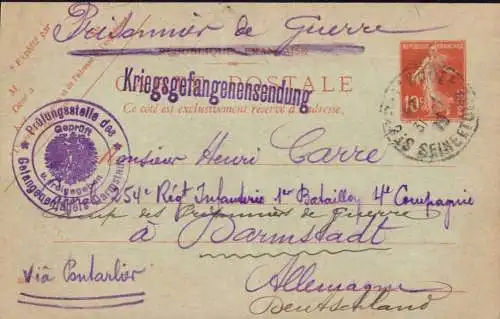 Prisonnier de Guerre
RÉPUBLIQUE FRANÇAISE
POSTALE
Kriegsgefangenensendung
Ce côté est exclusivement réservé à l'adresse.
RÉPUBLIQUE FRANÇAISE
10c
Prüfungsstelle des
Geprüft
u. freigegeben
Gefangenenlagers Darmstadt
Monsieur Henri Carre
254e Régt Infanterie 1er Bataillon 4e Compagnie
Camp des Prisonniers de guerre
à Darmstadt
Via Pontarlier
Allemagne
Deutschland